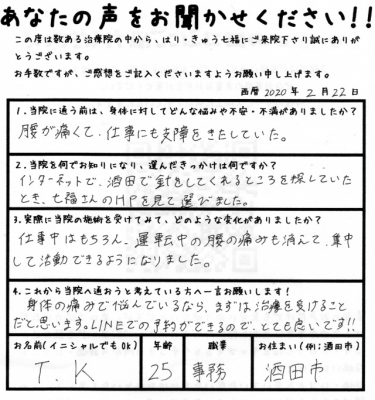 あなたの声をお聞かせください!!
この度は数ある治療院の中から、はり・きゅう七福にご来院下さり誠にありが
とうございます。
お手数ですが、ご感想をご記入くださいますようお願い申し上げます。
西暦 2020 年 2 月 22 日
1.当院に通う前は、身体に対してどんな悩みや不安・不満がありましたか?
腰が痛くて、仕事にも支障をきたしていた。
2.当院を何でお知りになり、選んだきっかけは何ですか?
インターネットで、酒田で針をしてくれるところを探していた
とき、七福さんのHPを見て選びました。
3.実際に当院の施術を受けてみて、どのような変化がありましたか?
仕事中はもちろん、運転中の腰の痛みも消えて、集中
して活動できるようになりました。
4.これから当院へ通おうと考えている方へ一言お願いします!
身体の痛みで悩んでいるなら、まずは治療を受けること
だと思います。LINEでの予約ができるので、とても良いです!!
お名前(イニシャルでもOK) 年齢 職業 お住まい(例:酒田市)
T.K 25 事務 酒田市